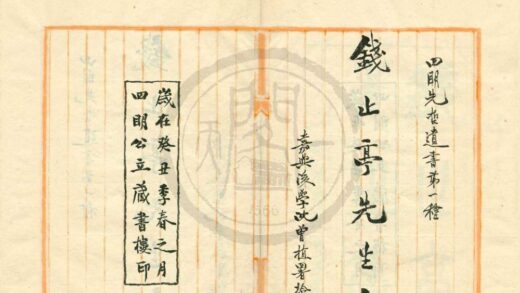 四明先哲遺書第一種
錢止亭先生
嘉興後學沈曾植署檢
歲在癸丑季春之月
四明公立藏書樓印